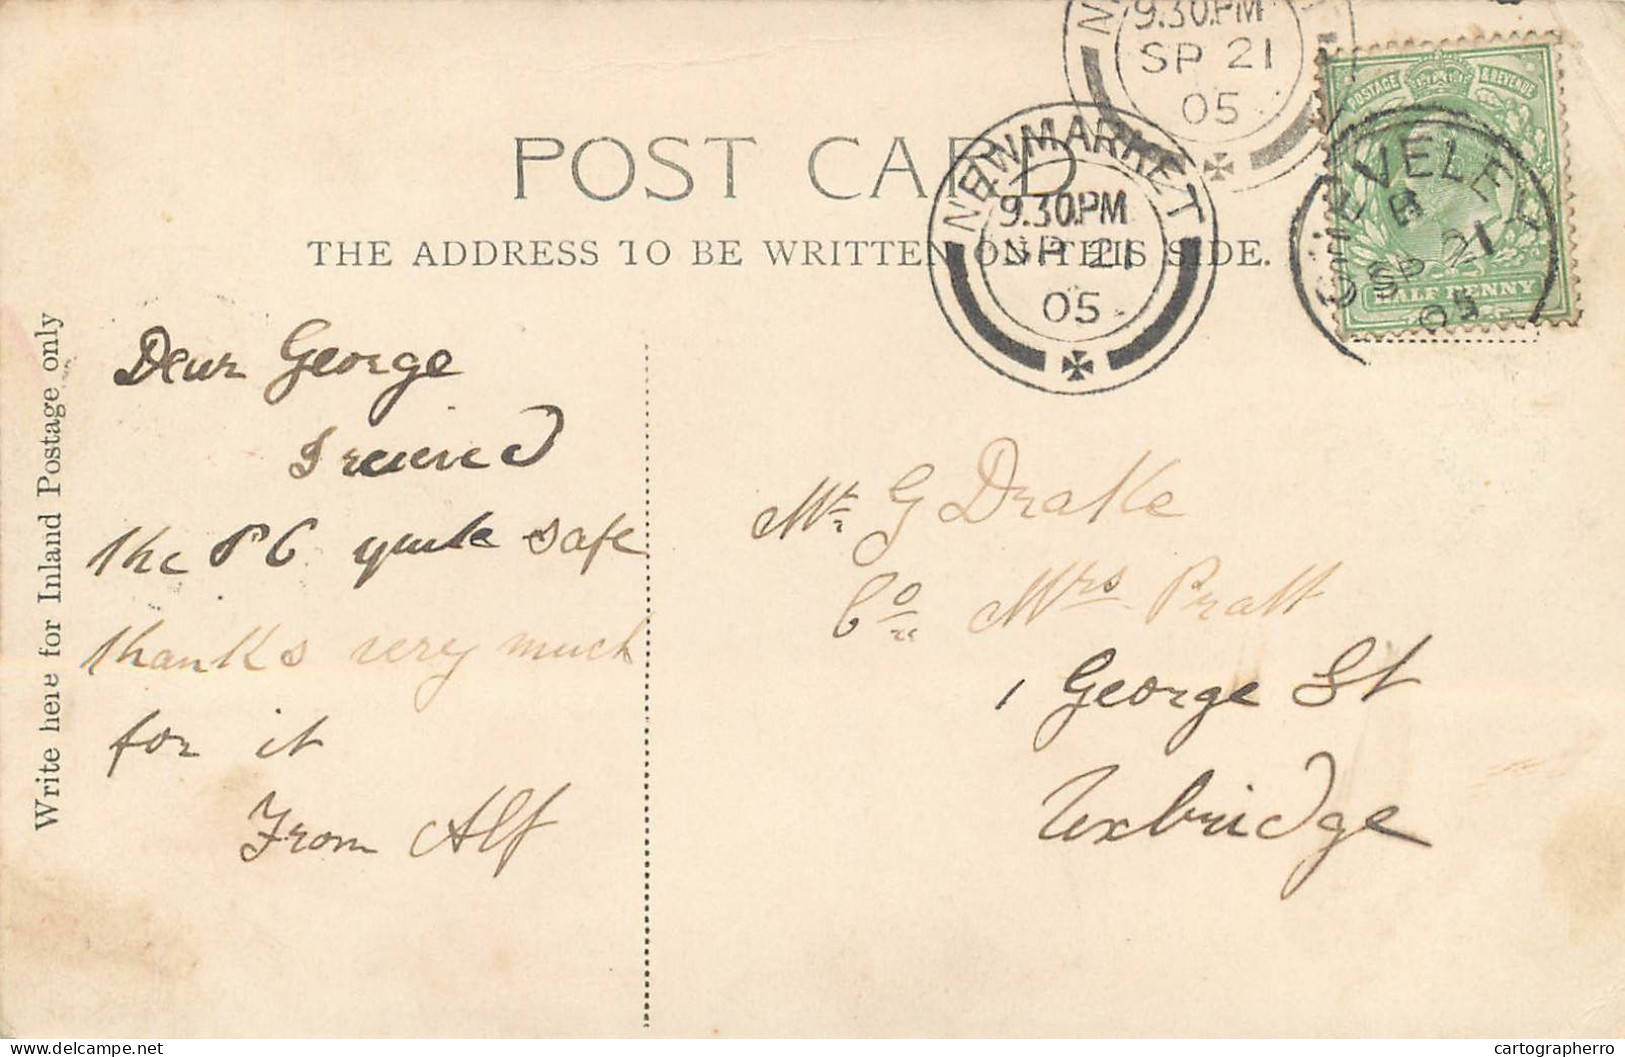 9.30.PM
SP 21
05
POSTAGE & REVENUE
POST CARD
NEWMARKET
9.30.PM
SP 21
05
CHEVELEY
B
SP 21
05
HALF PENNY
THE ADDRESS TO BE WRITTEN ON THIS SIDE.
Write here for Inland Postage only
Dear George
I received
the PC quite safe
thanks very much
for it
From Alf
Mr G Drake
Co Mrs Pratt
1 George St
Uxbridge
delcampe.net
cartographerro